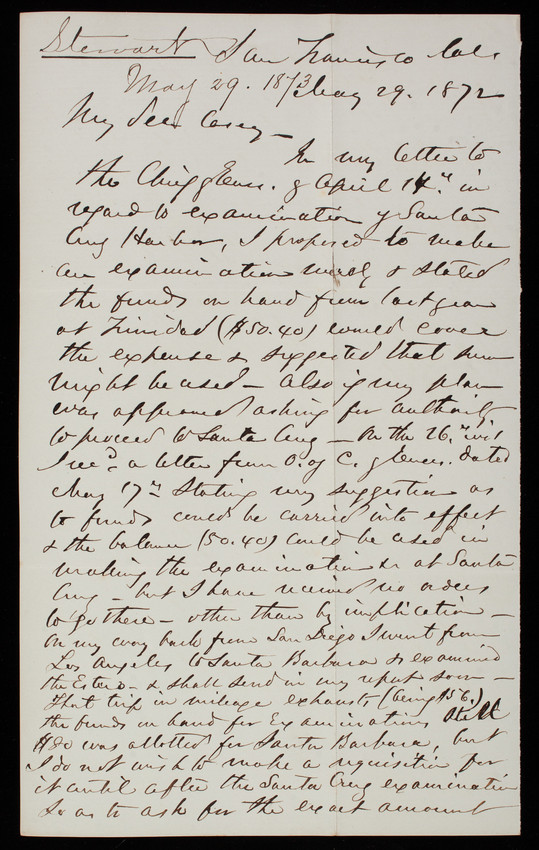 Stewart San Francisco Cal.
May 29. 1873 May 29. 1872
My dear Casey -
In my letter to
the Chief of Engrs. of April 14th in
regard to examination of Santa
Cruz Harbor, I proposed to make
an examination merely & stated
the funds on hand from last year
at Trinidad ($50.40) would cover
the expense & suggested that sum
might be used - also if my plan
was approved asking for authority
to proceed to Santa Cruz - On the 26th inst
I recd a letter from O. of C. of Engrs. dated
May 17th stating my suggestion as
to funds could be carried into effect
& the balance (50.40) could be used in
making the examination &c at Santa
Cruz - but I have received no orders
to go there - other than by implication -
On my way back from San Diego I went from
Los Angeles to Santa Barbara & examined
the Estero - & shall send in my report soon -
that trip in mileage exhausts (being $56.)
the funds on hand for Examinations
$80 was allotted for Santa Barbara, but
I do not wish to make a requisition for
it until after the Santa Cruz examination
so as to ask for the exact amount